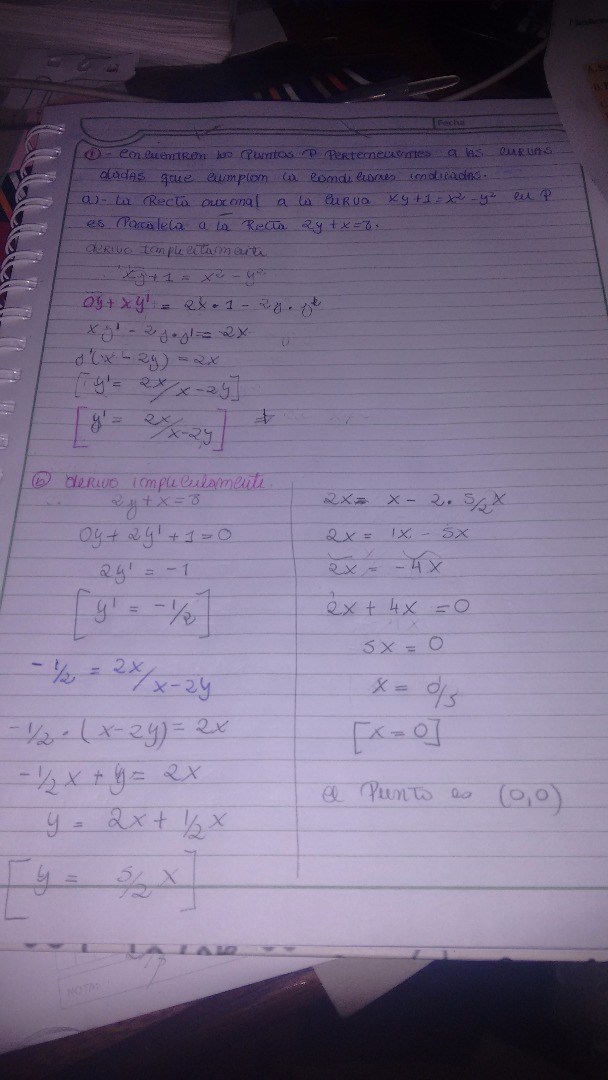 Fecha
①- encuentren los puntos P Pertenecientes a las curvas
dadas que cumplan la condiciones indicadas.
a)- La Recta normal a la curva xy+1=x²-y² en P
es Paralela a la Recta 2y+x=8.
derivo Implicitamente
xy+1 = x² - y²
0y+xy' = 2x•1 - 2y•y'
xy' - 2y•y' = 2x
y'(x-2y) = 2x
[y' = 2x/x-2y]
[y' = 2x/x-2y]
ⓑ derivo implicitamente.
2y+x=8
0y+2y'+1=0
2y' = -1
[y' = -1/2]
-1/2 = 2x/x-2y
-1/2•(x-2y)=2x
-1/2x+y=2x
y = 2x+1/2x
[y = 5/2x]
2x= x-2•5/2x
2x= 1x-5x
2x = -4x
2x+4x =0
5x=0
x= 0/5
[x=0]
el Punto es (0,0)
NOTA: